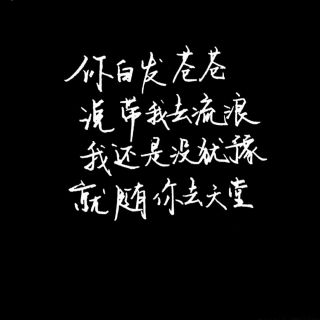 你白发苍苍
说带我去流浪
我还是没犹豫
就随你去天堂